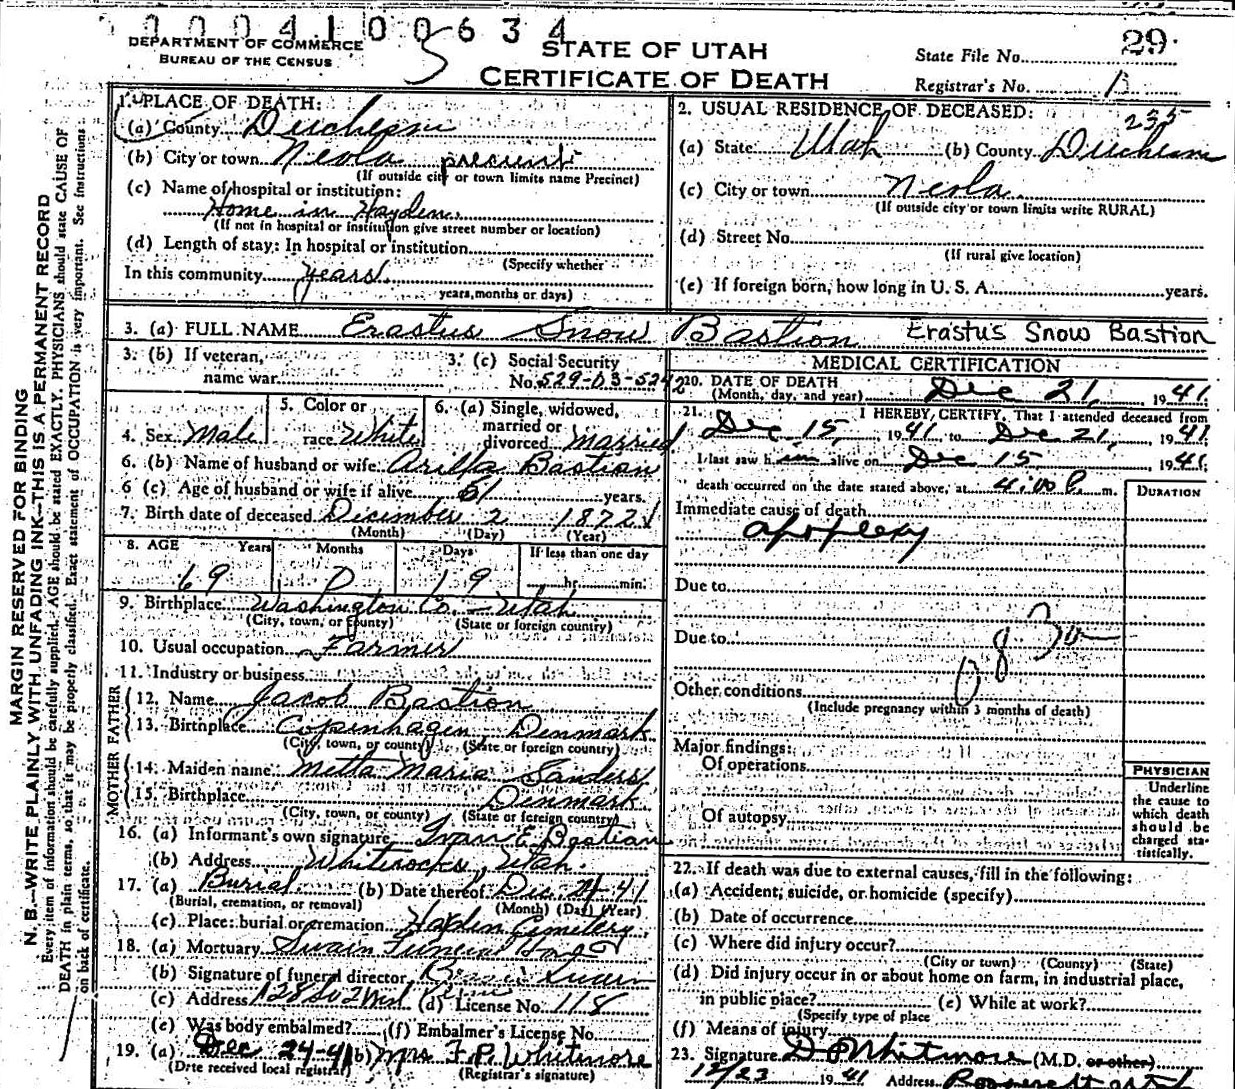 0 0 0 4 1 0 0 6 3 4
DEPARTMENT OF COMMERCE
BUREAU OF THE CENSUS
5
STATE OF UTAH
CERTIFICATE OF DEATH
State File No. 29
Registrar's No.
MARGIN RESERVED FOR BINDING
N. B.—WRITE PLAINLY WITH UNFADING INK—THIS IS A PERMANENT RECORD
Every item of information should be carefully supplied. AGE should be stated EXACTLY. PHYSICIANS should state CAUSE OF
DEATH in plain terms, so that it may be properly classified. Exact statement of OCCUPATION is very important. See instructions
on back of certificate.
1. PLACE OF DEATH:
(a) County Duchesne
(b) City or town Neola precinct
(If outside city or town limits name Precinct)
(c) Name of hospital or institution:
Home in Hayden
(If not in hospital or institution give street number or location)
(d) Length of stay: In hospital or institution
(Specify whether
In this community years
years, months or days)
2. USUAL RESIDENCE OF DECEASED:
235
(a) State Utah (b) County Duchesne
(c) City or town Neola
(If outside city or town limits write RURAL)
(d) Street No.
(If rural give location)
(e) If foreign born, how long in U. S. A. years.
3. (a) FULL NAME Erastus Snow Bastion Erastus Snow Bastion
3. (b) If veteran,
name war
3. (c) Social Security
No. 529-03-5242
4. Sex Male
5. Color or
race White
6. (a) Single, widowed,
married or
divorced Married
6. (b) Name of husband or wife Arilla Bastion
6 (c) Age of husband or wife if alive 61 years.
7. Birth date of deceased December 2 1872
(Month) (Day) (Year)
8. AGE Years Months Days If less than one day
69 0 19 hr. min.
9. Birthplace Washington Co. - Utah
(City, town, or county) (State or foreign country)
10. Usual occupation Farmer
11. Industry or business
FATHER
12. Name Jacob Bastion
13. Birthplace Copenhagen Denmark
(City, town, or county) (State or foreign country)
MOTHER
14. Maiden name Metta Maria Sanders
15. Birthplace Denmark
(City, town, or county) (State or foreign country)
16. (a) Informant's own signature Ivan E Bastian
(b) Address Whiterocks, Utah.
17. (a) Burial (b) Date thereof Dec. 24-41
(Burial, cremation, or removal) (Month) (Day) (Year)
(c) Place: burial or cremation Hayden Cemetery,
18. (a) Mortuary Swain Funeral Home
(b) Signature of funeral director Swain
(c) Address 128 So 2 (d) License No. 118
(e) Was body embalmed? (f) Embalmer's License No.
19. (a) Dec 24-41 (b) Mrs F. P. Whitmore
(Date received local registrar) (Registrar's signature)
MEDICAL CERTIFICATION
20. DATE OF DEATH
(Month, day, and year) Dec 21, 1941
21. I HEREBY CERTIFY, That I attended deceased from
Dec 15, 1941 to Dec 21, 1941
I last saw him alive on Dec 15 1941
death occurred on the date stated above, at 4:00 P. m.
DURATION
Immediate cause of death
apoplexy
Due to
Due to
Other conditions
(Include pregnancy within 3 months of death)
Major findings:
Of operations
Of autopsy
PHYSICIAN
Underline
the cause to
which death
should be
charged sta-
tistically.
22. If death was due to external causes, fill in the following:
(a) Accident, suicide, or homicide (specify)
(b) Date of occurrence
(c) Where did injury occur?
(City or town) (County) (State)
(d) Did injury occur in or about home on farm, in industrial place,
in public place? (e) While at work?
(Specify type of place
(f) Means of injury
23. Signature D O Whitmore (M.D. or other)
12/23 1941 Address Roosevelt Utah